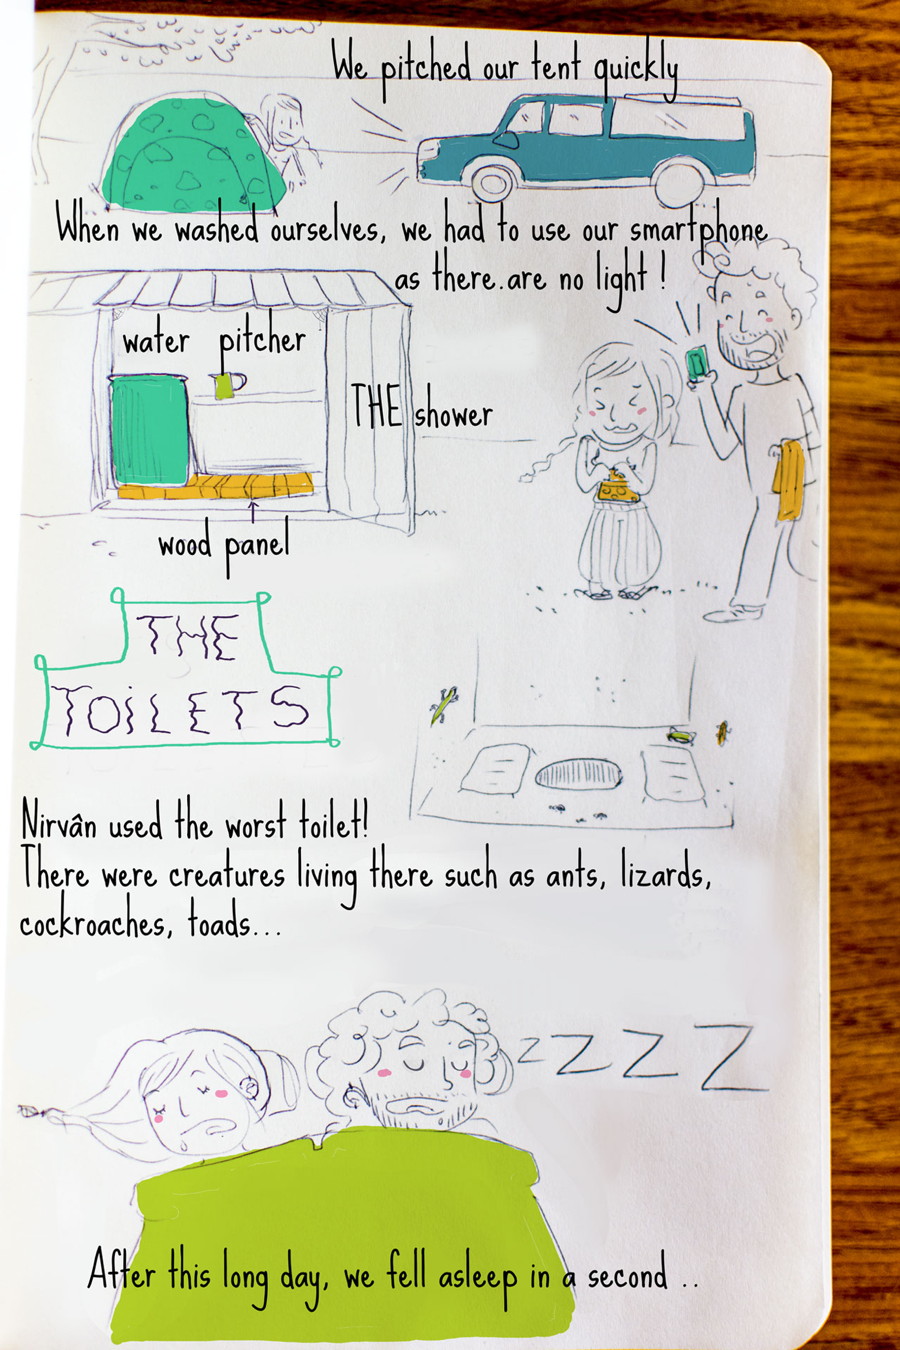 We pitched our tent quickly
When we washed ourselves, we had to use our smartphone
as there.are no light !
water pitcher
THE shower
wood panel
THE
TOiLETS
Nirvân used the worst toilet!
There were creatures living there such as ants, lizards,
cockroaches, toads...
zZZZ
After this long day, we fell asleep in a second ..